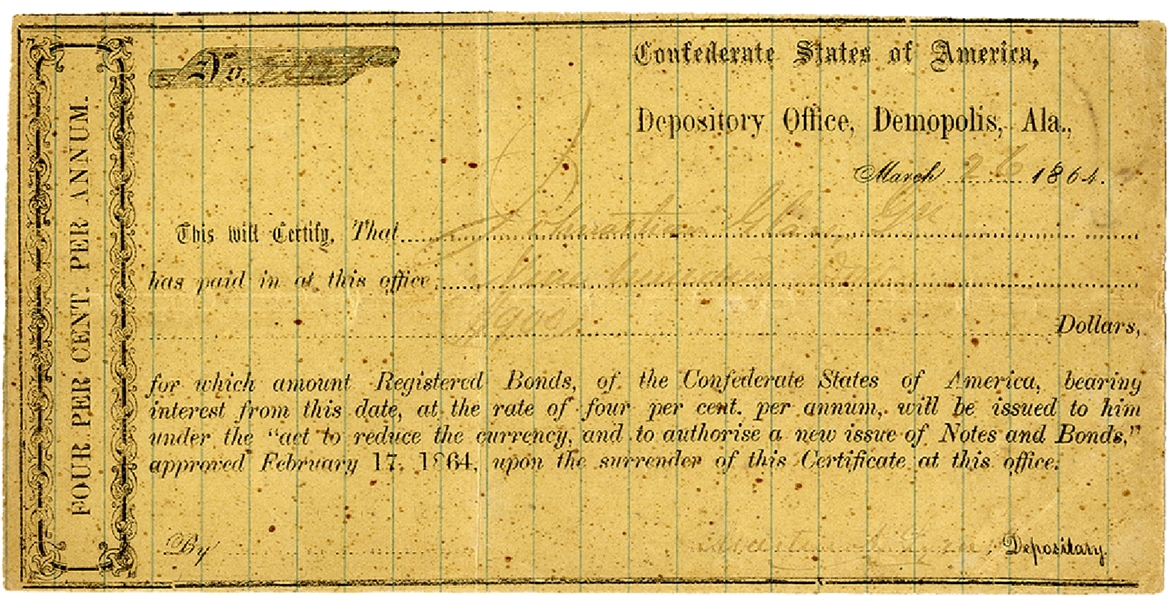 FOUR PER CENT. PER ANNUM.
No.
Confederate States of America,
Depository Office, Demopolis, Ala.,
March 26 1864.
This will Certify, That
has paid in at this office
Dollars,
for which amount Registered Bonds, of the Confederate States of America, bearing
interest from this date, at the rate of four per cent. per annum, will be issued to him
under the "act to reduce the currency, and to authorise a new issue of Notes and Bonds,"
approved February 17, 1864, upon the surrender of this Certificate at this office.
By
Depositary.